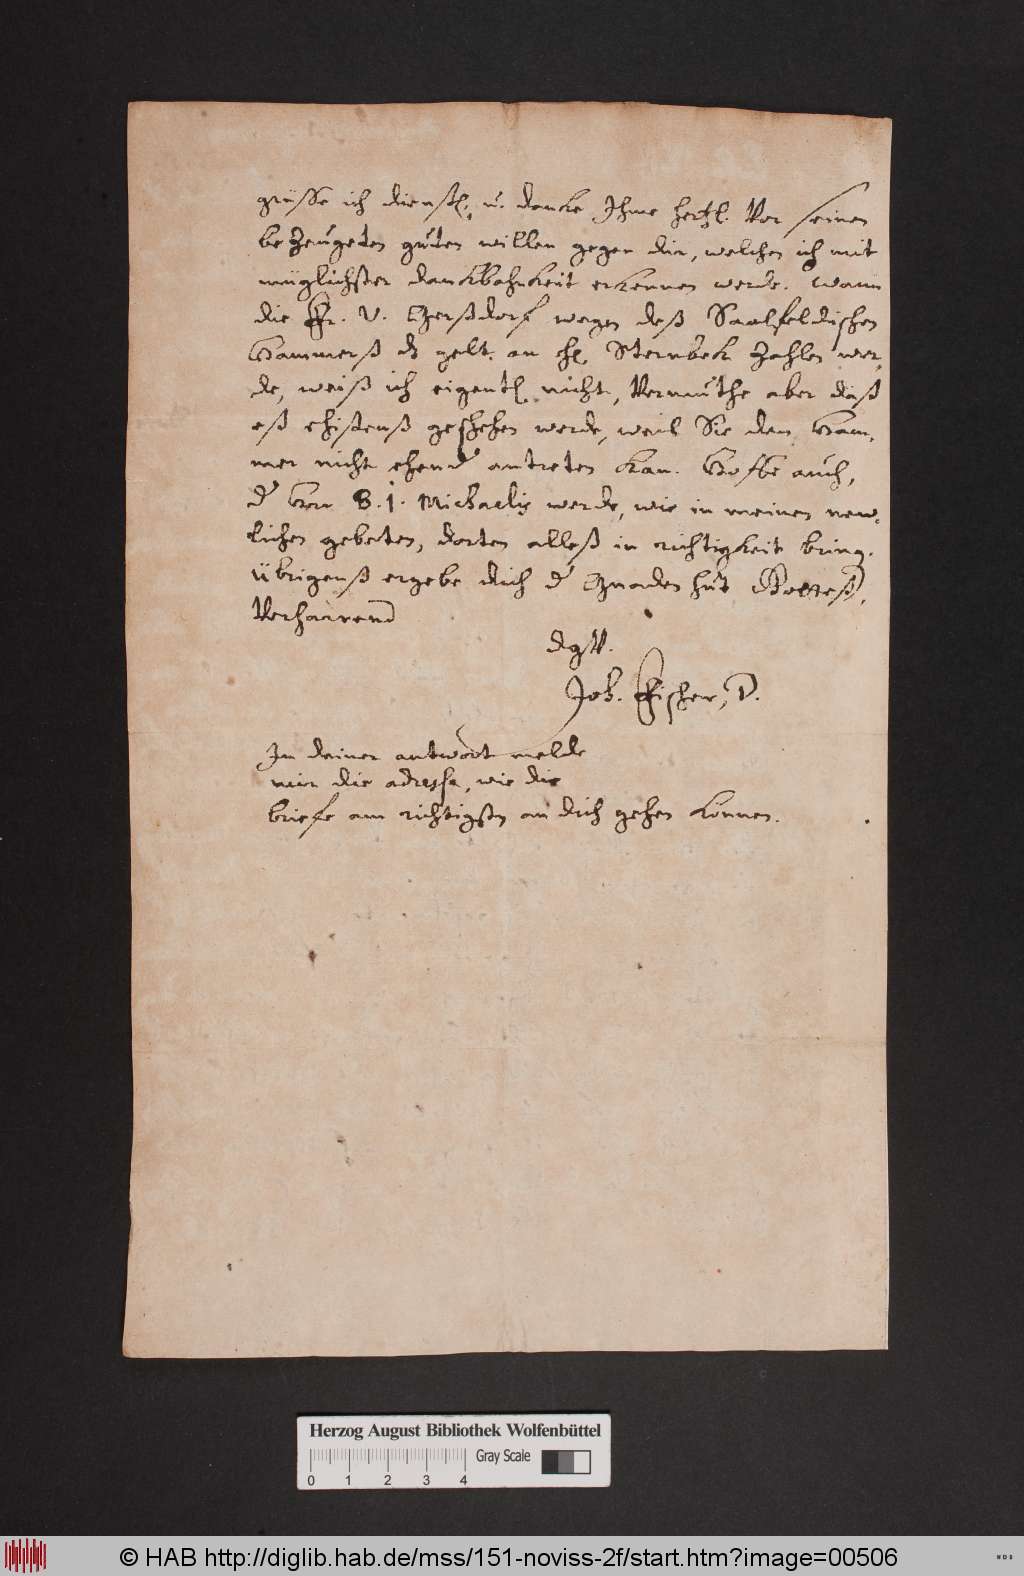 grüsse ich dienstl. u. dancke Ihme hertzl. vor seinen
bezeugeten guten willen gegen dir, welchen ich mit
müglichster danckbahrkeit erkennen werde. Wann
die Fr. v. Gerßdorf wegen deß Saalfeldischen
Hammerß dz gelt an H. Sternbek zahlen wer-
de, weiß ich eigentl. nicht, vermuthe aber daß
eß ehistenß geschehen werde, weil Sie den Ham-
mer nicht ehend antreten kan. Hoffe auch,
d Herr Michaelis werde, wie in meinen new-
lichen gebeten, dorten alleß in richtigkeit bring.
Übrigenß ergebe dich d Gnaden hut Gotteß,
Verharrend
dgV.
Joh. Fischer, D.
In deiner antwort melde
mir die adresse, wie die
briefe am richtigsten an dich gehen können.
Herzog August Bibliothek Wolfenbüttel
Gray Scale
0 1 2 3 4
© HAB http://diglib.hab.de/mss/151-noviss-2f/start.htm?image=00506